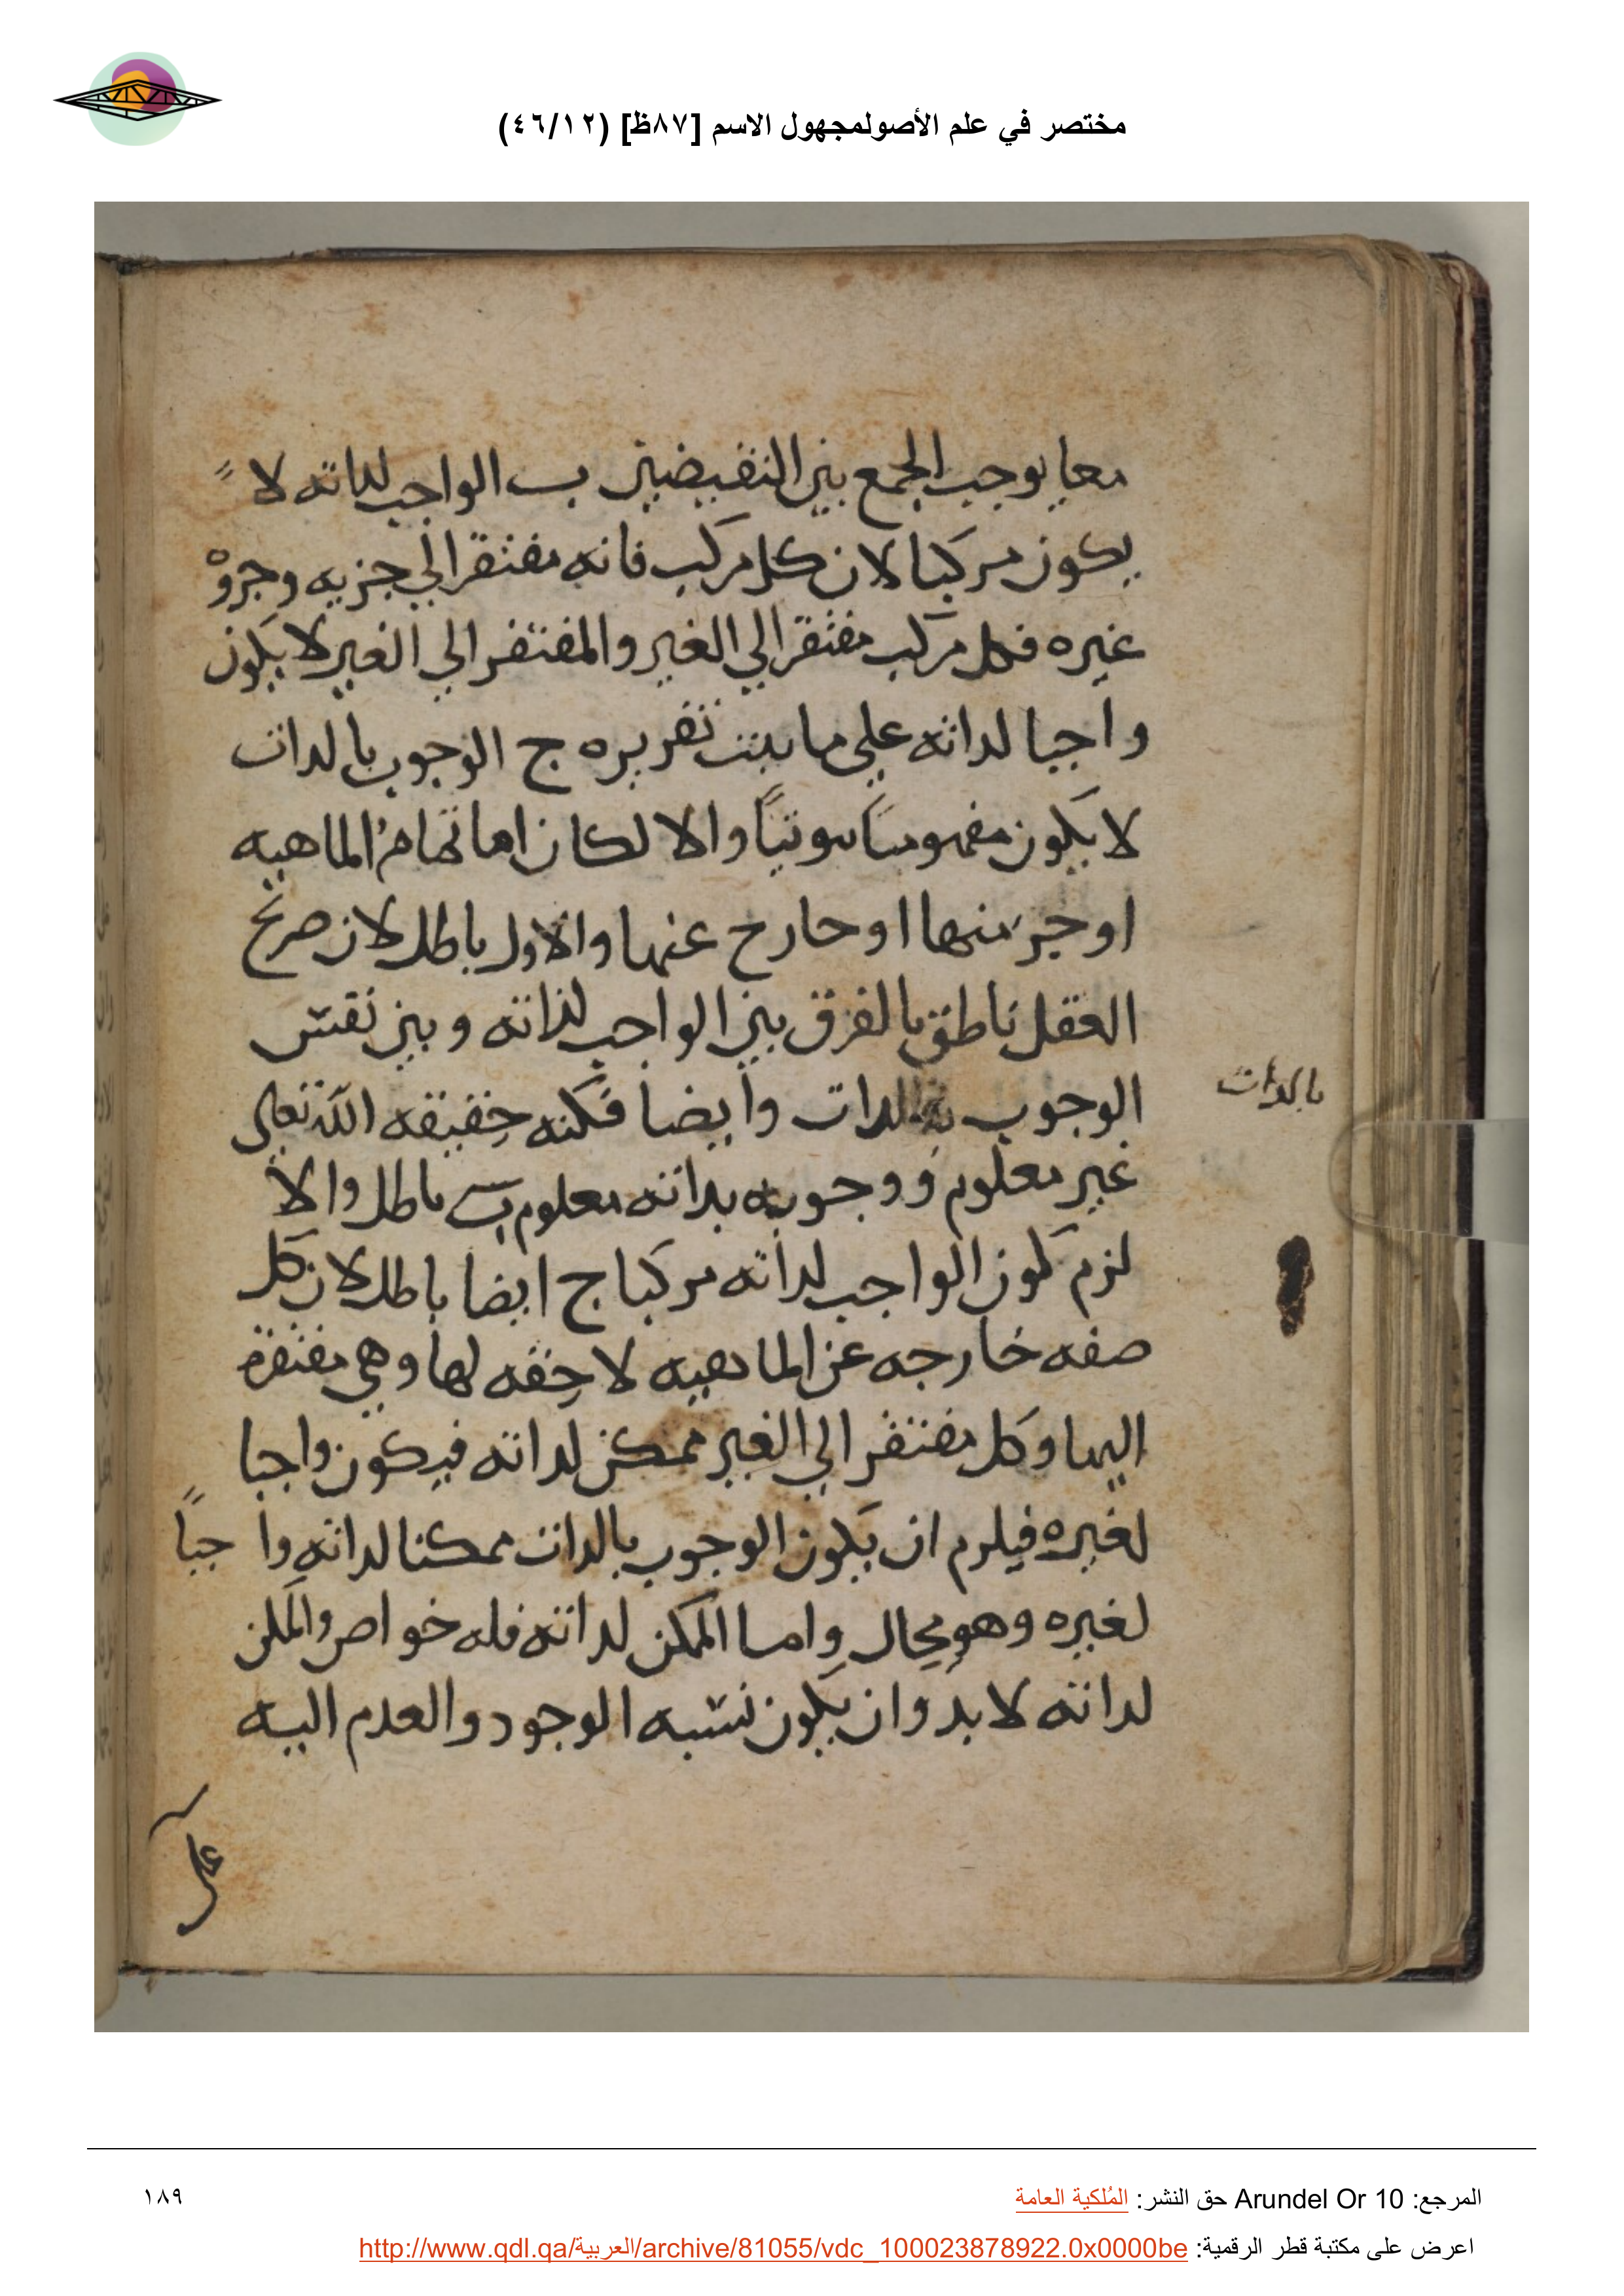 مختصر في علم الأصولمجهول الاسم [٨٧ظ] (٤٦/١٢)
معا يوجب الجمع بين النقيضين ب الواجب لداته لا
يكون مركبا لان كل مركب فانه مفتقر الي جزيه وجزوه
غيره فكل مركب مفتقر الي الغير والمفتقر الي الغير لا يكون
واجبا لداته علي ما ثبتت تقريره ج الوجوب بالدات
لا يكون مفهوما ثبوتيًا والا لكان اما تمامُ الماهيه
او جزء منها او خارج عنها والاول باطل لان صريح
العقل ناطق بالفرق بين الواجب لذاته وبين نفس
الوجوب بالدات وأيضا فكنه حقيقه الله تعالى
بالدات
غير معلوم ووجوبه بداته معلوم ب باطل والا
لزم كون الواجب لداته مركبا ج ايضا باطل لان كل
صفه خارجه عن الماهيه لاحقه لها وهي مفتقرة
اليها وكل مفتقر الي الغير ممكن لداته فيكون واجبا
لغيره فيلزم ان يكون الوجوب بالدات ممكنا لداته واجباً
لغيره وهو محال واما الممكن لداته فله خواص والممكن
لداته لا بد وان يكون نسبه الوجود والعدم اليه
علي
المرجع: Arundel Or 10 حق النشر: المُلكية العامة
١٨٩
اعرض على مكتبة قطر الرقمية: http://www.qdl.qa/العربية/archive/81055/vdc_100023878922.0x0000be